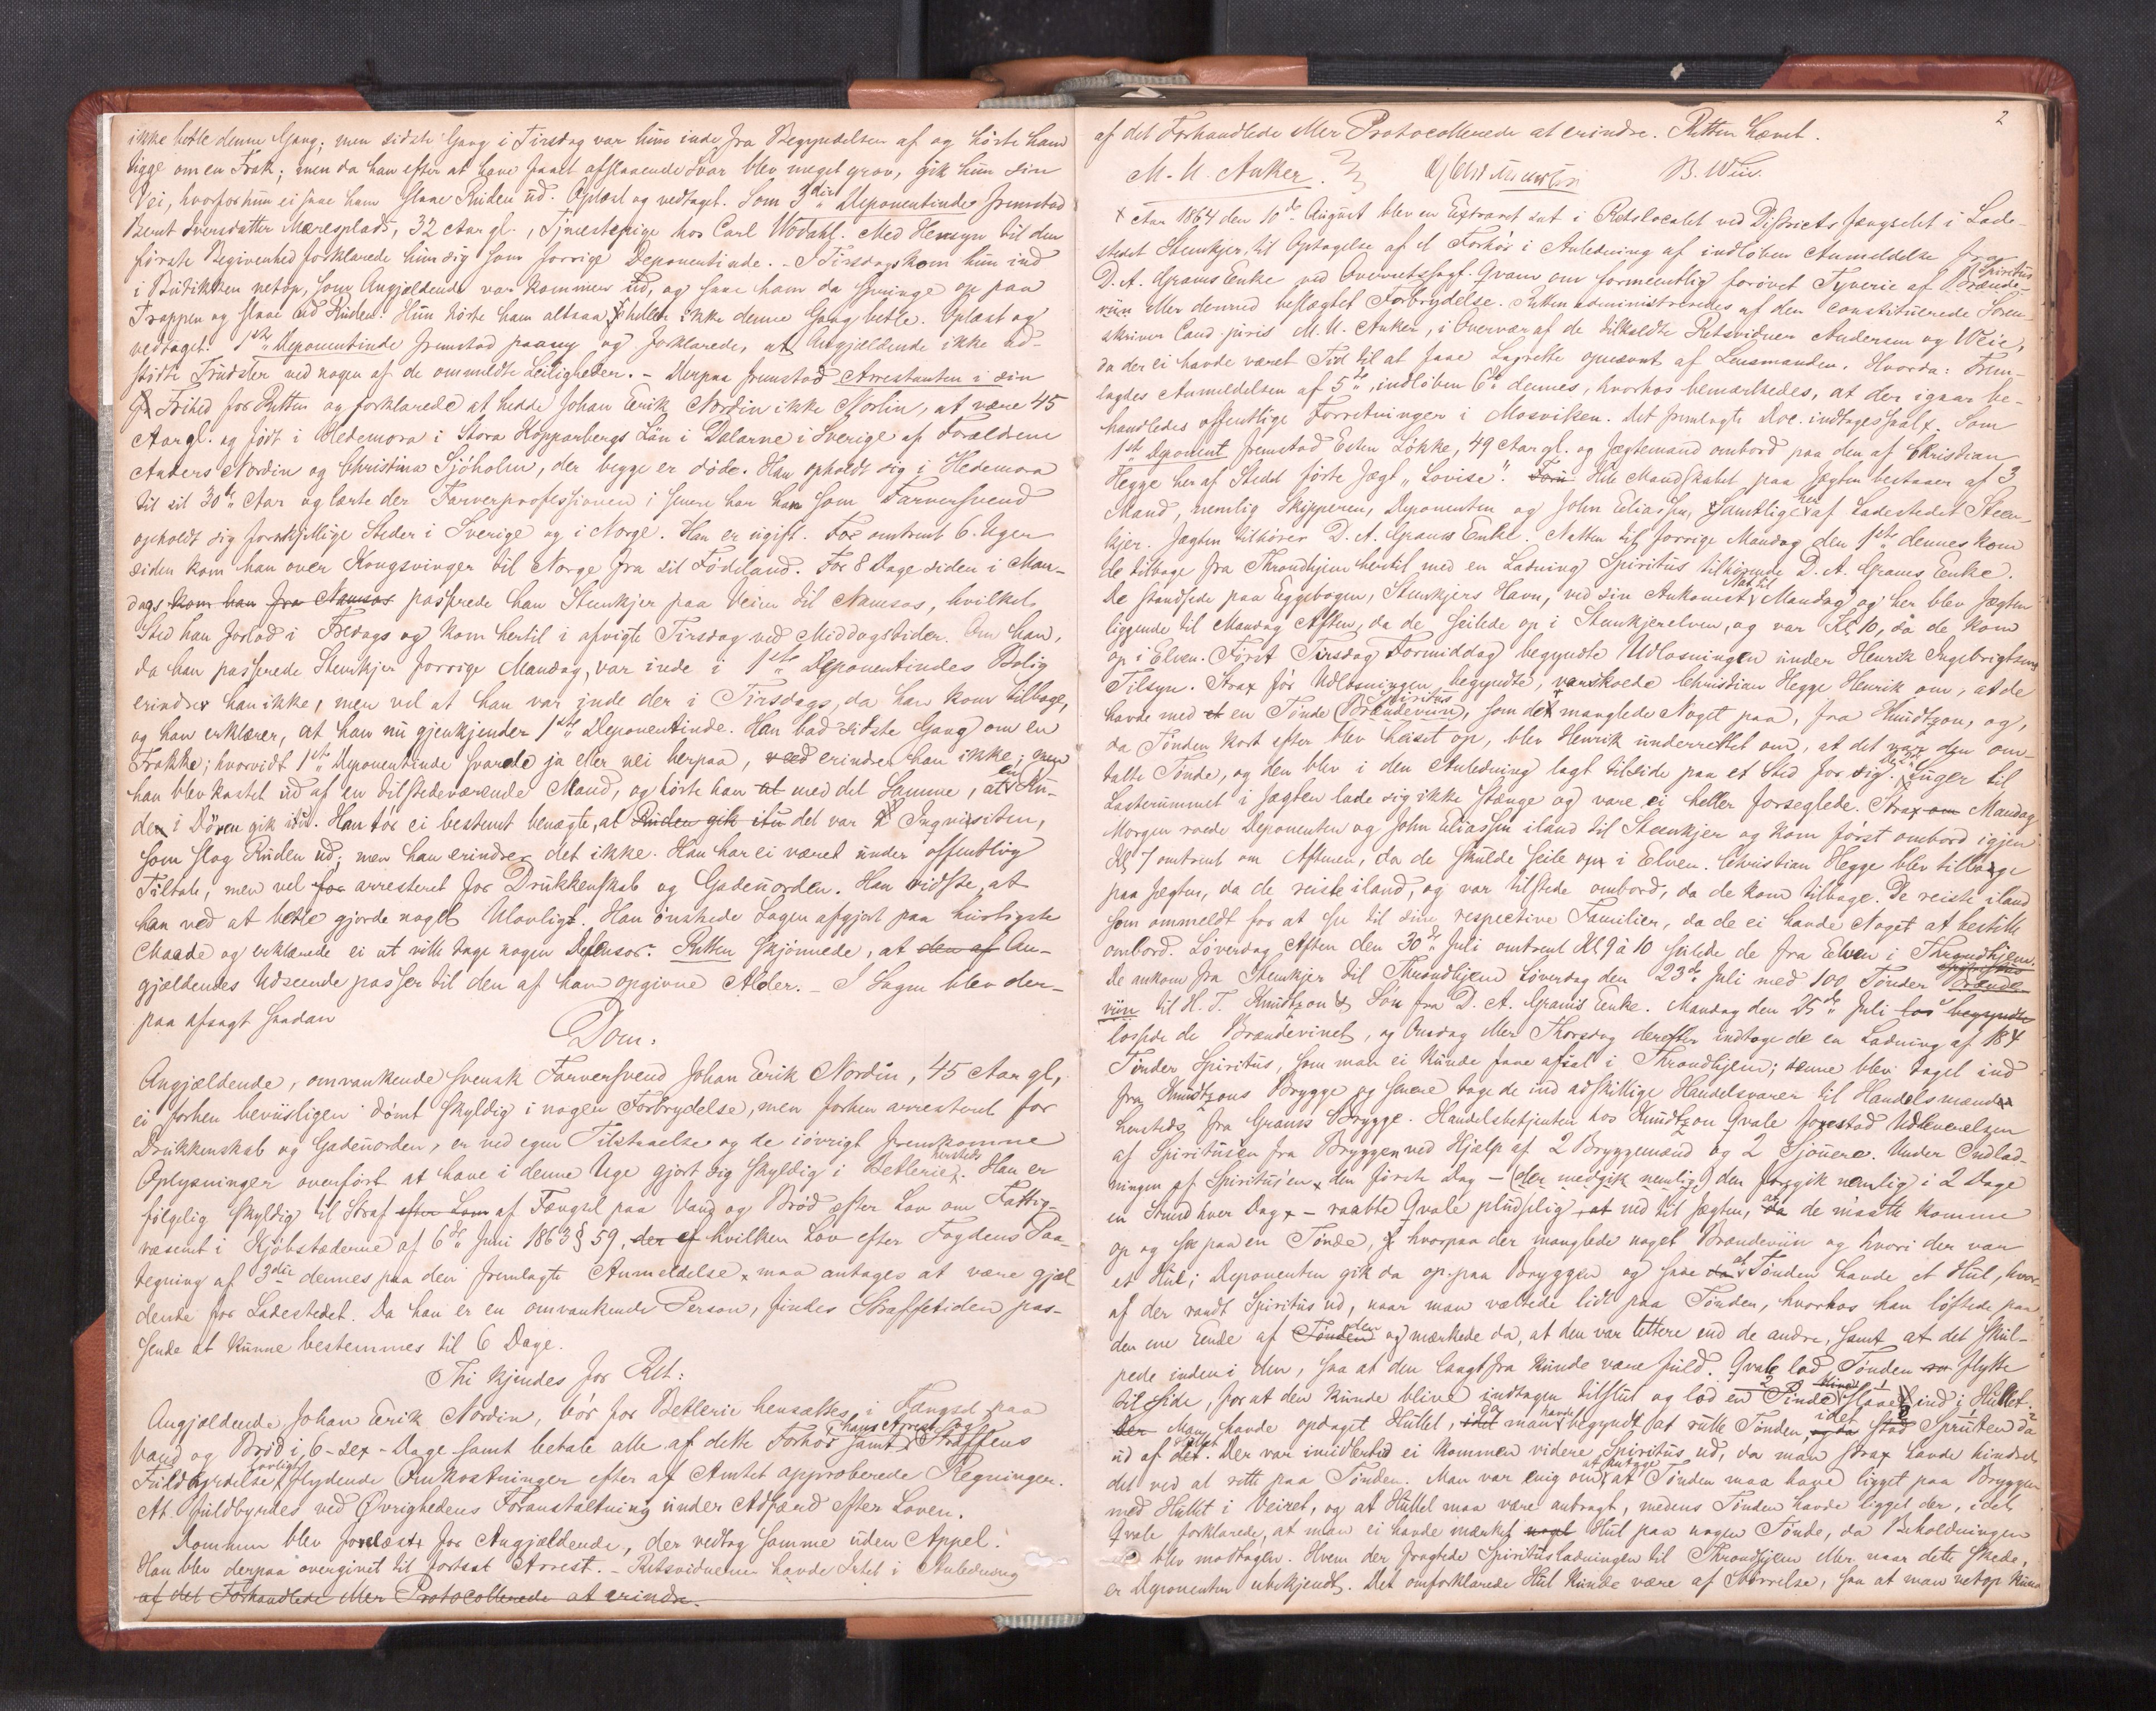 ikke betle denne Gang; men sidste Gang i Tirsdag var hun inde fra Begyndelsen af og hørte ham
tigge om en Frak; men da han efter at have faaet afslaaende Svar blev meget grov, gik hun sin
Vei, hvorfor hun ei saae ham slaae Ruden ud. Oplæst og vedtaget. Som 3die Deponentinde fremstod
Beret Iversdatter Mæresplads, 32 Aar gl., Tjenestepige hos Carl Wodahl. Med Hensyn til den
første Begivenhed forklarede hun sig som forrige Deponentinde. – I Tirsdags kom hun ind
i Butikken netop, som Angjældende var kommen ud, og saae ham da springe op paa
Trappen og slaae ud Ruden. Hun hørte ham altsaa heller ikke denne Gang betle. Oplæst og
vedtaget. 1ste Deponentinde fremstod paany og forklarede, at Angjældende ikke ud-
stødte Trudsler ved nogen af de ommeldte Leiligheder. – Derpaa fremstod Arrestanten i sin
Frihed for Retten og forklarede at hedde Johan Erik Nordin ikke Norlin, at være 45
Aar gl. og født i Hedemora i Stora Kopparbergs Län i Dalarne i Sverige af Forældrene
Anders Nordin og Christina Sjöholm, der begge er døde. Han opholdt sig i Hedemora
til sit 30te Aar og lærte der Farverprofessionen i senere har han som Farversvend
opholdt sig forskjellige Steder i Sverige og i Norge. Han er ugift. For omtrent 6 Uger
siden kom han over Kongsvinger til Norge fra sit Fødeland. For 8 Dage siden i Man-
dags kom han fra Namsos passerede han Stenkjer paa Veien til Namsos, hvilket
Sted han forlod i Fredags og kom hertil i afvigte Tirsdag ved Middagstider. Om han,
da han passerede Stenkjer forrige Mandag, var inde i 1ste Deponentindes Bolig
erindrer han ikke, men vel at han var inde der i Tirsdags, da han kom tilbage,
og han erklærer, at han nu gjenkjender 1ste Deponentinde. Han bad sidste Gang om en
Frakke; hvorvidt 1ste Deponentinde svarede ja eller nei herpaa, ved erindrer han ikke; men
han blev kastet ud af en tilstedeværende Mand, og hørte han at med det Samme, at en Ru-
den i Døren gik itu. Han tør ei bestemt benægte, at Ruden gik itu det var Inqvisiten,
som slog Ruden ud; men han erindrer det ikke. Han har ei været under offentlig
Tiltale, men vel for arresteret for Drukkenskab og Gadeuorden. Han vidste, at
han ved at betle gjorde noget Ulovligt. Han ønskede Sagen afgjort paa hurtigste
Maade og erklærede ei at ville tage nogen Defensor. Retten skjønnede, at den af An-
gjældendes Udseende passer til den af ham opgivne Alder. – I Sagen blev der-
paa afsagt saadan
Dom:
Angjældende, omvankende svensk Farversvend Johan Erik Nordin, 45 Aar gl,
ei forhen beviisligen dømt skyldig i nogen Forbrydelse, men forhen arresteret for
Drukkenskab og Gadeuorden, er ved egen Tilstaaelse og de iøvrigt fremkomne
Oplysninger overført at have i denne Uge gjort sig skyldig i Betlerie hersteds. Han er
følgelig skyldig til Straf efter Lov af Fængsel paa Vand og Brød efter Lov om Fattig-
væsenet i Kjøbstæderne af 6te Juni 1863 § 59, der ef hvilken Lov efter Fogdens Paa-
tegning af 3die dennes paa den fremlagte Anmeldelse maa antages at være gjæl-
dende for Ladestedet. Da han er en omvankende Person, findes Straffetiden pas-
sende at kunne bestemmes til 6 Dage.
Thi kjendes for Ret:
Angjældende Johan Erik Nordin, bør for Betlerie hensættes i Fængsel paa
Vand og Brød i 6 – sex – Dage samt betale alle af dette Forhør samt hans Arrest og Straffens
Fuldbyrdelse lovligt flydende Omkostninger efter af Amtet approberede Regninger.
At fuldbyrdes ved Øvrighedens Foranstaltning under Adfærd efter Loven.
Dommen blev forelæst for Angjældende, der vedtog samme uden Appel.
Han blev derpaa overgivet til fortsat Arrest. – Retsvidnerne havde Intet i Anledning
af det Forhandlede eller Protocollerede at erindre.
2
af det Forhandlede eller Protocollerede at erindre. Retten hævet.
M. U. Anker. B. Wiie.
Aar 1864 den 10de August blev en Extraret sat i Retslocalet ved Districts Fængslet i Lade-
stedet Stenkjer, til Optagelse af et Forhør i Anledning af indløben Anmeldelse fra
D. A. Grams Enke ved Overretssagf. Qvam om formeentlig forøvet Tyverie af Brænde- Spiritus
viin eller dermed beslægtet Forbrydelse. Retten administreredes af den constituerede Soren-
skriver Cand. juris M. U. Anker, i Overvær af de tilkaldte Retsvidner Andersen og Weie,
da der ei havde været Tid til at faae Lagrette opnævnt af Lensmanden. Hvorda: Frem-
lagdes Anmeldelsen af 5te, indløben 6te dennes, hvorhos bemærkedes, at der igaar be-
handledes offentlige Forretninger i Mosviken. Det fremlagte Doc. indtages saal. Som
1ste Deponent fremstod Esten Løkke, 49 Aar gl. og Jægtemand ombord paa den af Christian
Hegge her af Stedet førte Jægt „Lovise". Som Hele Mandskabet paa Jægten bestaaer af 3
Mand, nemlig Skipperen, Deponenten og John Eliassen, samtlige her af Ladestedet Steen-
kjer. Jægten tilhører D. A. Grams Enke. Natten til forrige Mandag den 1ste dennes kom
de tilbage fra Throndhjem hertil med en Ladning Spiritus tilhørende D. A. Grams Enke.
De standsede paa Eggebogen, Stenkjers Havn, ved sin Ankomst Nat til Mandag og her blev Jægten
liggende til Mandag Aften, da de seilede op i Stenkjerelven, og var Kl 10, da de kom
op i Elven. Først Tirsdag Formiddag begyndte Udlosningen under Henrik Ingebrigtsens
Tilsyn. Strax før Udlosningen begyndte, varskoede Christian Hegge Henrik om, at de
havde med et en Tønde Brændeviin, Spiritus som det manglede Noget paa, fra Knudtzon, og,
da Tønden kort efter blev heiset op, blev Henrik underrettet om, at det var den om-
talte Tønde, og den blev i den Anledning lagt tilside paa et Sted for sig. Luger til
Lasterummet i Jægten lade sig ikke stænge og vare ei heller forseglede. Strax om Mandag
Morgen roede Deponenten og John Eliassen iland til Steenkjer og kom først ombord igjen
Kl 7 omtrent om Aftenen, da de skulde seile op i Elven. Christian Hegge blev tilbage
paa Jægten, da de reiste iland, og var tilstede ombord, da de kom tilbage. De reiste iland
som ommeldt for at see til sine respective Familier, da de ei havde Noget at bestille
ombord. Løverdag Aften den 30te Juli omtrent Kl 9 à 10 seilede de fra Elven i Throndhjem.
De ankom fra Stenkjer til Throndhjem Løverdag den 23de Juli med 100 Tønder Brænde-
viin til H. T. Knudtzon & Søn fra D. A. Grams Enke. Mandag den 25de Juli los begyndte
lossede de Brændevinet, og Onsdag eller Thorsdag derefter indtoge de en Ladning af 184
Tønder Spiritus, som man ei kunde faae afsat i Throndhjem; denne blev taget ind
fra Knudtzons Brygge og senere toge de ind adskillige Handelsvarer til Handelsmænd
hersteds fra Grams Brygge. Handelsbetjenten hos Knudtzon Qvale forestod Udleverelsen
af Spiritusen fra Bryggen ved Hjælp af 2 Bryggemænd og 2 Sjøuere. Under Indlad-
ningen af Spiritus'en den første Dag – (der medgik nemlig) den foregik nemlig i 2 Dage
en Stund hver Dag – raabte Qvale pludselig at ned til Jægten, at de maatte komme
op og see paa en Tønde, hvorpaa der manglede noget Brændeviin og hvori der var
et Hul; Deponenten gik da op paa Bryggen og saae da at Tønden havde et Hul, hvor-
af der randt Spiritus ud, naar man væltede lidt paa Tønden, hvorhos han løftede paa
den ene Ende af Tønden og mærkede da, at den var lettere end de andre, samt at det skul-
pede inden i den, saa at den langt fra kunde være fuld. Qvale lod Tønden flytte
til Side, for at den kunde blive indtagen tilslut og lod en Pinde slaae ind i Hullet.
Man havde opdaget Hullet, idet man havde begyndt at rulle Tønden, idet stod Spruten da
ud af Hullet. Der var imidlertid ei kommen videre Spiritus ud, da man strax havde hindret
det ved at rette paa Tønden. Man var enig om at Tønden maa have ligget paa Bryggen
med Hullet i Veiret, og at Hullet maa være anbragt, medens Tønden havde ligget der, idet
Qvale forklarede, at man ei havde mærket noget Hul paa nogen Tønde, da Beholdningen
blev modtagen. Hvem der fragtede Spiritusladningen til Throndhjem eller naar dette skede,
er Deponenten ubekjendt. Det omforklarede Hul kunde være af Størrelse, saa at man netop kunde